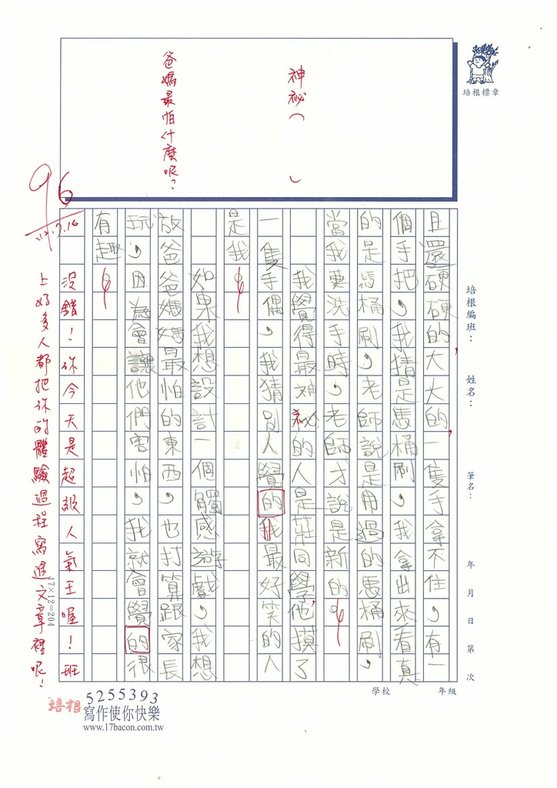 培根標章
培根編班：
姓名：
筆名：
年 月 日 第 次
學校 年級
神祕（ ）
爸媽最怕什麼呢？
且還硬硬的大大的一隻手拿不住，有一
個手把，我猜是馬桶刷，我拿出來看真
的是馬桶刷，老師說是用過的馬桶刷，
當我要洗手時，老師才說是新的。
我覺得最神祕的人是莊同學他摸了
一隻手偶，我猜別人覺的我最好笑的人
是我。
如果我想設計一個觸感遊戲，我想
放爸爸媽媽最怕的東西，也打算跟家長
玩，因為會讓他們害怕，我就會覺的很
有趣。
96
沒錯！你今天是超級人氣王喔！班
上好多人都把你的體驗過程寫進文章裡呢！
17×12=204
培根
5255393
寫作使你快樂
www.17bacon.com.tw